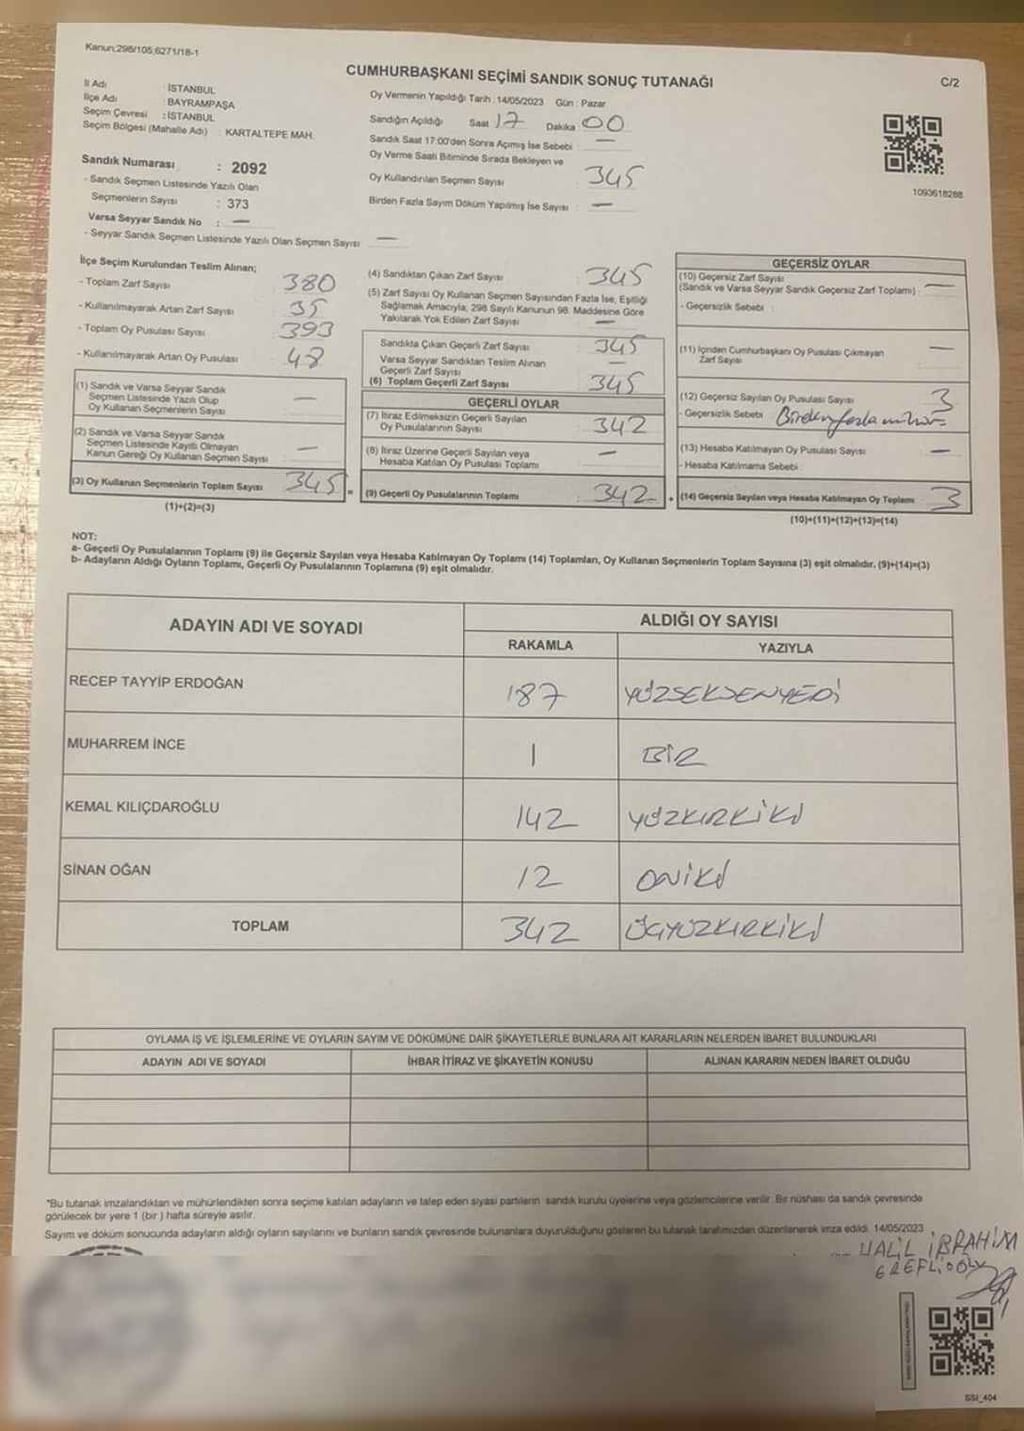 Kanun;298/105;6271/18-1
CUMHURBAŞKANI SEÇİMİ SANDIK SONUÇ TUTANAĞI
C/2
İl Adı İSTANBUL
İlçe Adı : BAYRAMPAŞA
Seçim Çevresi : İSTANBUL
Seçim Bölgesi (Mahalle Adı) : KARTALTEPE MAH.
Sandık Numarası : 2092
- Sandık Seçmen Listesinde Yazılı Olan
Seçmenlerin Sayısı : 373
Varsa Seyyar Sandık No : —
- Seyyar Sandık Seçmen Listesinde Yazılı Olan Seçmen Sayısı —
Oy Vermenin Yapıldığı Tarih : 14/05/2023 Gün : Pazar
Sandığın Açıldığı Saat 17 Dakika 00
Sandık Saat 17:00'den Sonra Açmış İse Sebebi : —
Oy Verme Saati Bitiminde Sırada Bekleyen ve
Oy Kullandırılan Seçmen Sayısı : 345
Birden Fazla Sayım Döküm Yapılmış İse Sayısı : —
1093618288
İlçe Seçim Kurulundan Teslim Alınan;
- Toplam Zarf Sayısı : 380
- Kullanılmayarak Artan Zarf Sayısı : 35
- Toplam Oy Pusulası Sayısı : 393
- Kullanılmayarak Artan Oy Pusulası : 48
(1) Sandık ve Varsa Seyyar Sandık
Seçmen Listesinde Yazılı Olup
Oy Kullanan Seçmenlerin Sayısı : —
(2) Sandık ve Varsa Seyyar Sandık
Seçmen Listesinde Kayıtlı Olmayan
Kanun Gereği Oy Kullanan Seçmen Sayısı : —
(3) Oy Kullanan Seçmenlerin Toplam Sayısı : 345 =
(1)+(2)=(3)
(4) Sandıktan Çıkan Zarf Sayısı : 345
(5) Zarf Sayısı Oy Kullanan Seçmen Sayısından Fazla İse, Eşitliği
Sağlamak Amacıyla, 298 Sayılı Kanunun 98. Maddesine Göre
Yakılarak Yok Edilen Zarf Sayısı : —
Sandıkta Çıkan Geçerli Zarf Sayısı : 345
Varsa Seyyar Sandıktan Teslim Alınan
Geçerli Zarf Sayısı : —
(6) Toplam Geçerli Zarf Sayısı : 345
GEÇERLİ OYLAR
(7) İtiraz Edilmeksizin Geçerli Sayılan
Oy Pusulalarının Sayısı : 342
(8) İtiraz Üzerine Geçerli Sayılan veya
Hesaba Katılan Oy Pusulası Toplamı : —
(9) Geçerli Oy Pusulalarının Toplamı : 342 +
GEÇERSİZ OYLAR
(10) Geçersiz Zarf Sayısı
(Sandık ve Varsa Seyyar Sandık Geçersiz Zarf Toplamı) : —
- Geçersizlik Sebebi :
(11) İçinden Cumhurbaşkanı Oy Pusulası Çıkmayan
Zarf Sayısı : —
(12) Geçersiz Sayılan Oy Pusulası Sayısı : 3
- Geçersizlik Sebebi : Birden fazla mühür
(13) Hesaba Katılmayan Oy Pusulası Sayısı : —
- Hesaba Katılmama Sebebi :
(14) Geçersiz Sayılan veya Hesaba Katılmayan Oy Toplamı : 3
(10)+(11)+(12)+(13)=(14)
NOT:
a- Geçerli Oy Pusulalarının Toplamı (9) ile Geçersiz Sayılan veya Hesaba Katılmayan Oy Toplamı (14) Toplamları, Oy Kullanan Seçmenlerin Toplam Sayısına (3) eşit olmalıdır. (9)+(14)=(3)
b- Adayların Aldığı Oyların Toplamı, Geçerli Oy Pusulalarının Toplamına (9) eşit olmalıdır.
ADAYIN ADI VE SOYADI ALDIĞI OY SAYISI
RAKAMLA YAZIYLA
RECEP TAYYİP ERDOĞAN 187 YÜZSEKSENYEDİ
MUHARREM İNCE 1 BİR
KEMAL KILIÇDAROĞLU 142 YÜZKIRKİKİ
SİNAN OĞAN 12 ONİKİ
TOPLAM 342 ÜÇYÜZKIRKİKİ
OYLAMA İŞ VE İŞLEMLERİNE VE OYLARIN SAYIM VE DÖKÜMÜNE DAİR ŞİKAYETLERLE BUNLARA AİT KARARLARIN NELERDEN İBARET BULUNDUKLARI
ADAYIN ADI VE SOYADI İHBAR İTİRAZ VE ŞİKAYETİN KONUSU ALINAN KARARIN NEDEN İBARET OLDUĞU
*Bu tutanak imzalandıktan ve mühürlendikten sonra seçime katılan adayların ve talep eden siyasi partilerin sandık kurulu üyelerine veya gözlemcilerine verilir. Bir nüshası da sandık çevresinde
görülecek bir yere 1 (bir ) hafta süreyle asılır.
Sayım ve döküm sonucunda adayların aldığı oyların sayılarını ve bunların sandık çevresinde bulunanlara duyurulduğunu gösteren bu tutanak tarafımızdan düzenlenerek imza edildi. 14/05/2023
HALİL İBRAHİM
SSI_404